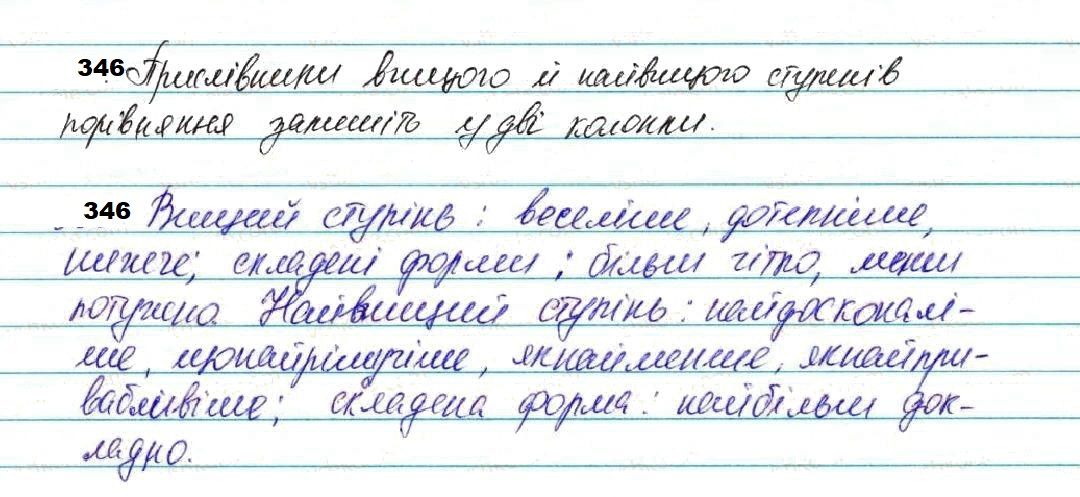 346 Прислівники вищого й найвищого ступенів
порівняння запишіть у дві колонки.
346 Вищий ступінь: веселіше, дотепніше,
нижче; складені форми: більш чітко, менш
потужно. Найвищий ступінь: найдосконалі-
ше, щонайрішучіше, якнайменше, якнайпри-
вабливіше; складена форма: найбільш док-
ладно.